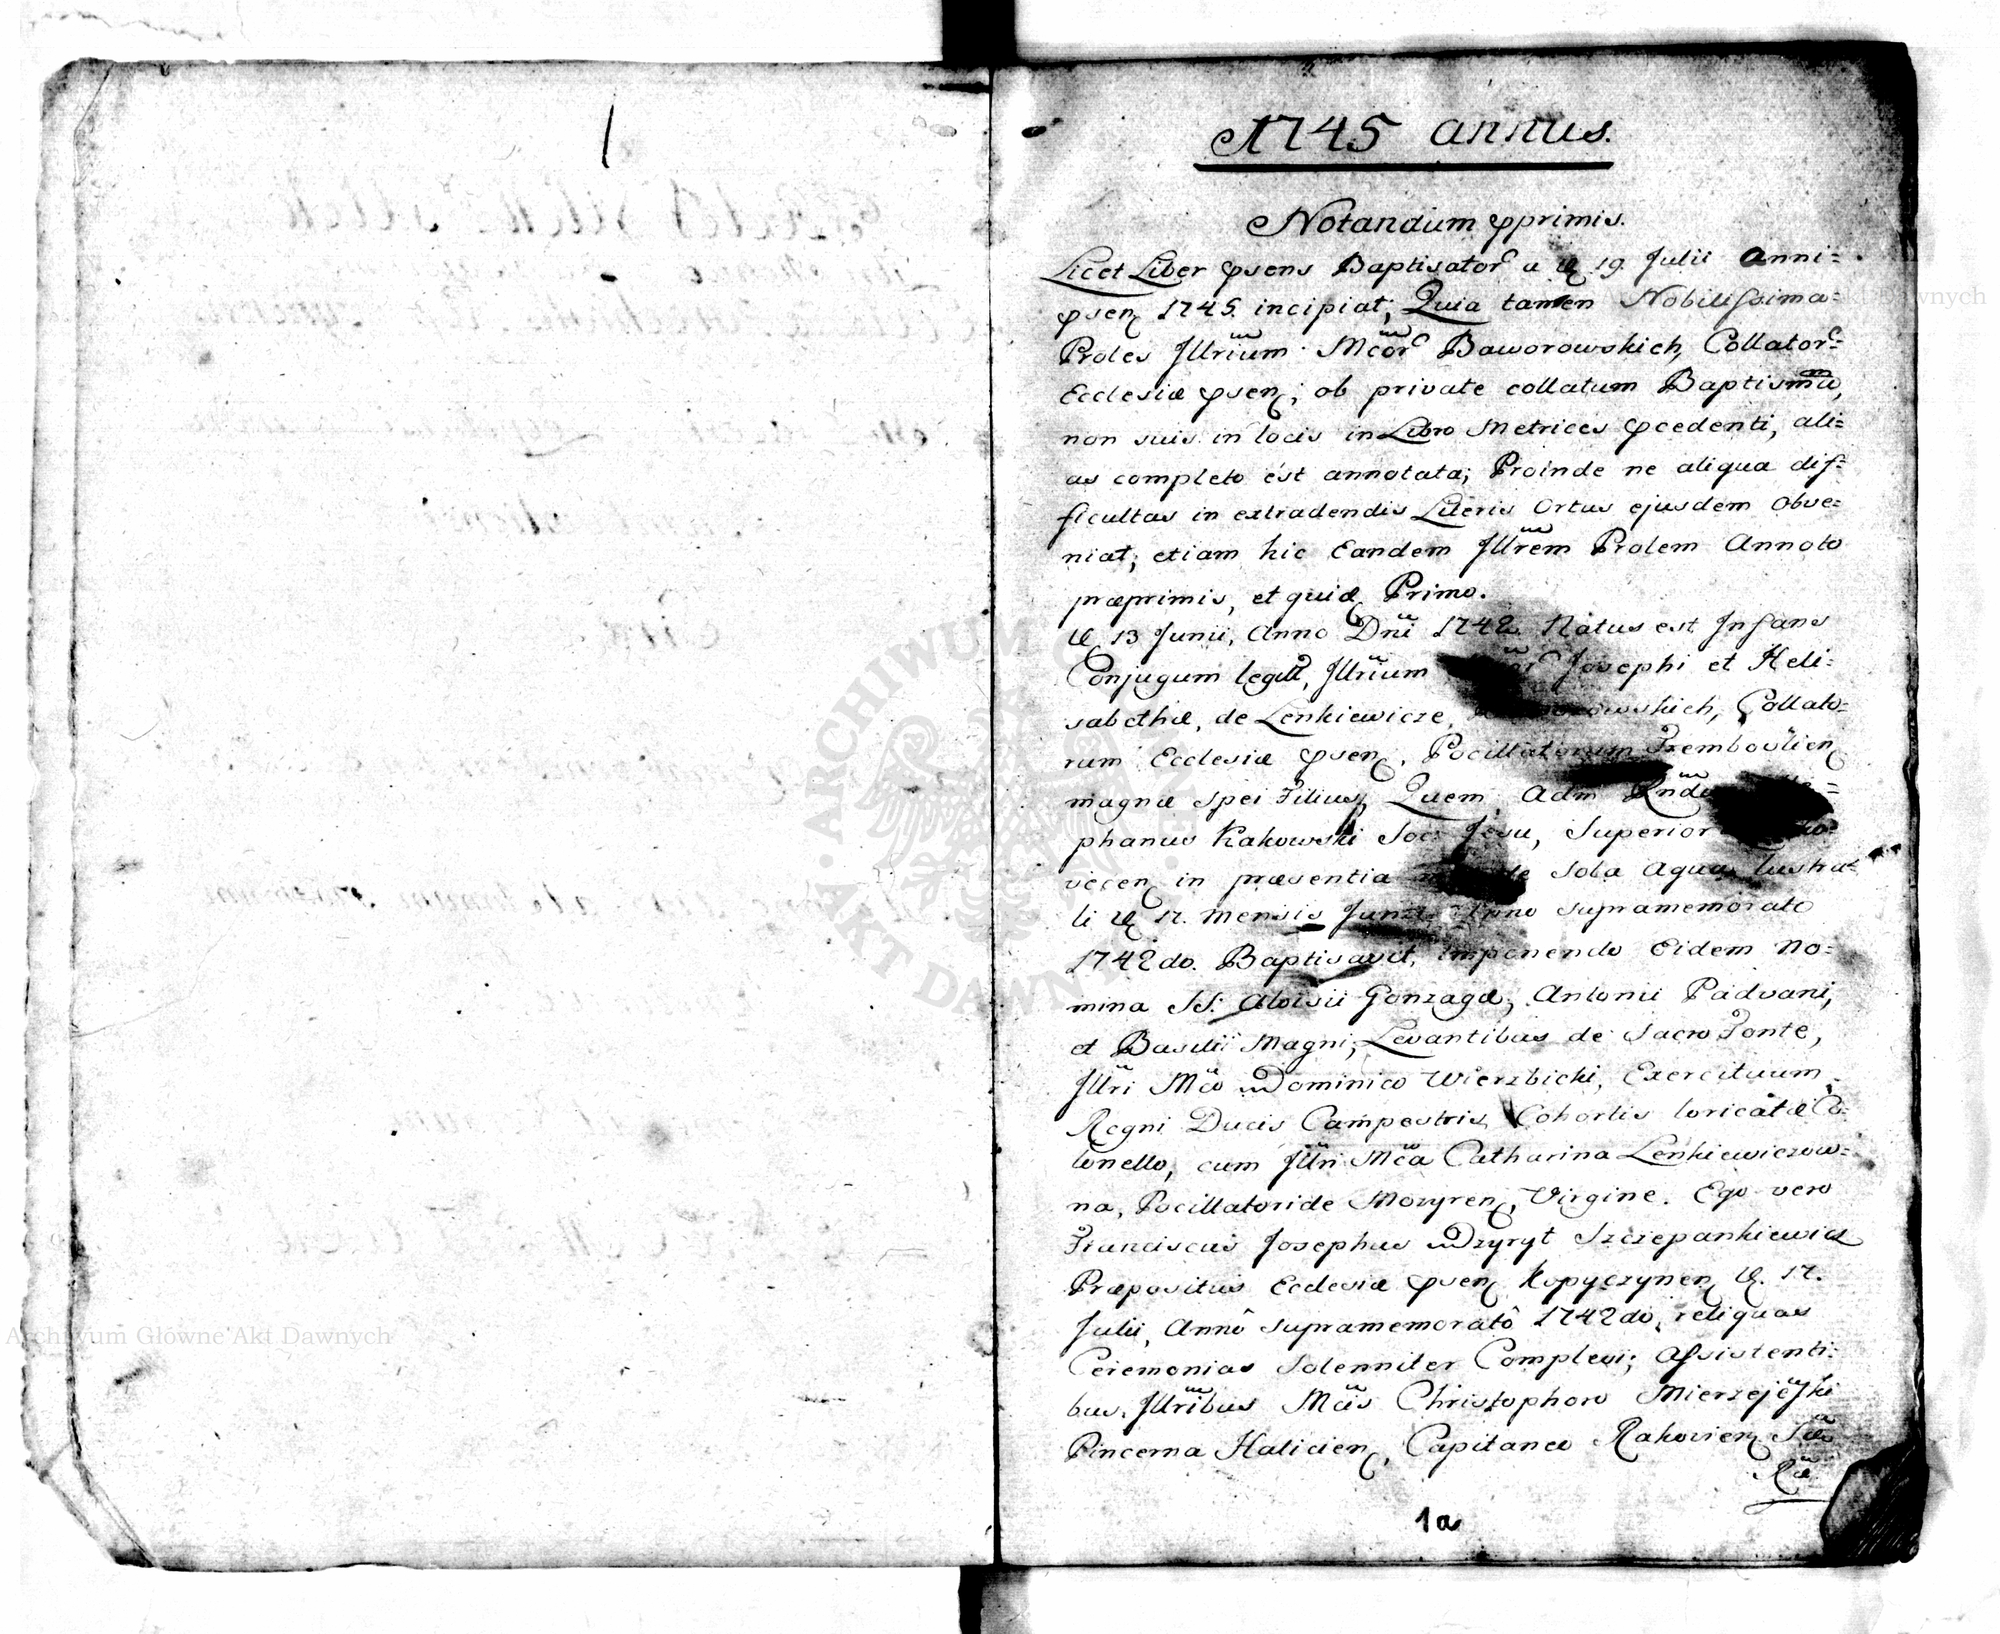 1
1745 annus.
Notandum pprimis.
Licet Liber psens Baptisator a d 19 Julii Anni=
psen 1745 incipiat, Quia tamen Nobilissima
Proles Illrium Mcor Baworowskich, Collator=
Ecclesiæ psen; ob private collatum Baptisma,
non suis in locis in Libro Metrices pcedenti, ali=
as completo est annotata; Proinde ne aliqua dif=
ficultas in extradendis Literis Ortus ejusdem obve=
niat; etiam hic Eandem Illrem Prolem Annoto
præprimis, et quid Primo.
d 13 Junii, Anno Dni 1742 Natus est Infans
Conjugum legitt, Illrium Josephi et Heli=
sabethæ, de Lenkiewicze, Collato=
rum Ecclesiæ psen, Pocillatorum Trembovlien
magnæ spei Filius, Quem, Adm Rndus
phanus Kakowski Soc: Jesu, Superior
vecen in præsentia sola Aqua lustra=
li d 17. mensis Junii Anno supramemorato
1742do. Baptisavit, imponendo Eidem No=
mina SS: Aloisii Gonzagæ, Antonii Paduani,
et Basilii Magni, Levantibus de Sacro Fonte,
Illri Mco Dominico Wierzbicki, Exercituum
Regni Ducis Campestris Cohortis loricatæ Co=
lonello, cum Illri Mca Catharina Lenkiewiczow=
na, Pocillatoride Mozyren, Virgine. Ego vero
Franciscus Josephus Dzyryt Szczepankiewicz
Præpositus Ecclesiæ psen Kopyczynen d. 17.
Julii, Annô supramemoratô 1742do, reliquas
Ceremonias Solenniter Complevi; Assistenti=
bus Illribus Mcis Christophoro Mierzejewski
Pincerna Halicien, Capitaneo Rakovien Sæ
Ræ
1a
ARCHIWUM GŁÓWNE AKT DAWNYCH
Archiwum Główne Akt Dawnych